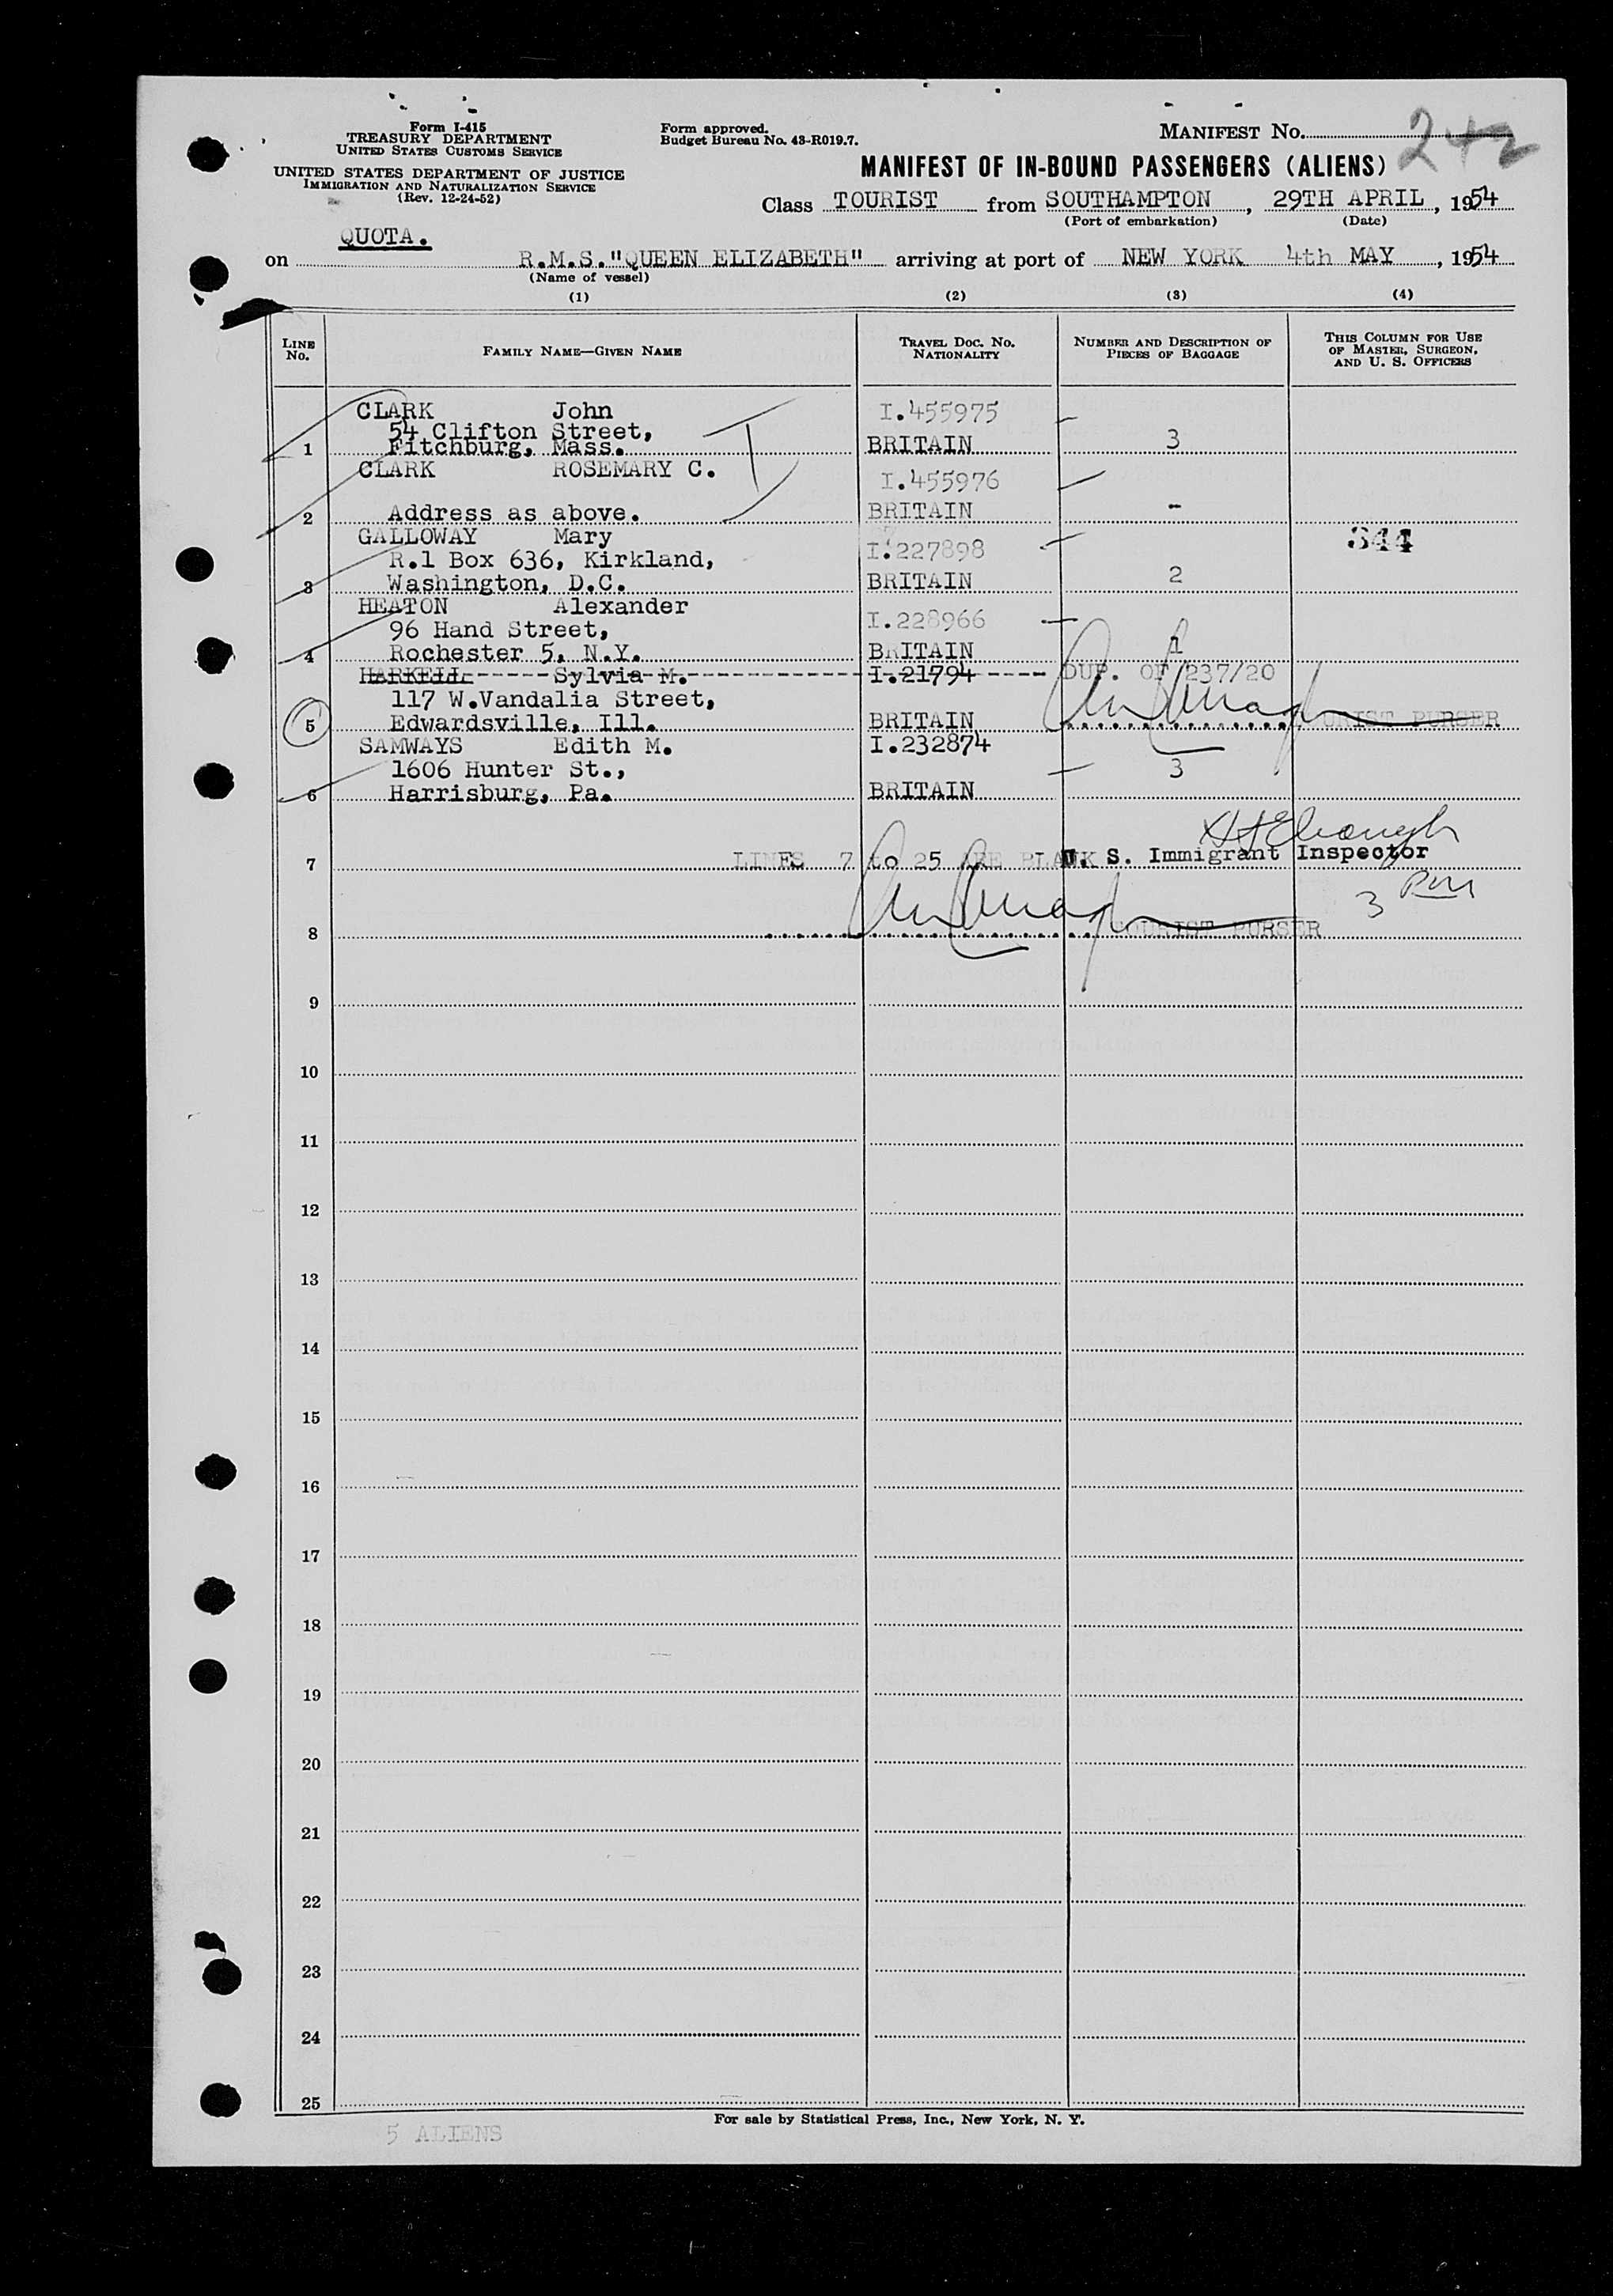 Form I-415
TREASURY DEPARTMENT
UNITED STATES CUSTOMS SERVICE
UNITED STATES DEPARTMENT OF JUSTICE
IMMIGRATION AND NATURALIZATION SERVICE
(Rev. 12-24-52)
Form approved.
Budget Bureau No. 43-R019.7.
MANIFEST No. 242
MANIFEST OF IN-BOUND PASSENGERS (ALIENS)
Class TOURIST from SOUTHAMPTON, 29TH APRIL, 1954
(Port of embarkation) (Date)
QUOTA.
on R.M.S."QUEEN ELIZABETH" arriving at port of NEW YORK 4th MAY, 1954
(Name of vessel)
(1) (2) (3) (4)
LINE No. FAMILY NAME—GIVEN NAME TRAVEL DOC. NO. NATIONALITY NUMBER AND DESCRIPTION OF PIECES OF BAGGAGE THIS COLUMN FOR USE OF MASTER, SURGEON, AND U. S. OFFICERS
CLARK John I.455975
54 Clifton Street,
1 Fitchburg, Mass. BRITAIN 3
CLARK ROSEMARY C. I.455976
2 Address as above. BRITAIN -
GALLOWAY Mary I.227898 344
R.1 Box 636, Kirkland,
3 Washington, D.C. BRITAIN 2
HEATON Alexander I.228966
96 Hand Street,
4 Rochester 5, N.Y. BRITAIN 1
HARKELL Sylvia M. I.21794 DUP. OF 237/20
117 W.Vandalia Street,
5 Edwardsville, Ill. BRITAIN TOURIST PURSER
SAMWAYS Edith M. I.232874
1606 Hunter St., 3
6 Harrisburg, Pa. BRITAIN
7 LINES 7 to 25 ARE BLANK U. S. Immigrant Inspector
3
8 TOURIST PURSER
9
10
11
12
13
14
15
16
17
18
19
20
21
22
23
24
25
For sale by Statistical Press, Inc., New York, N. Y.
5 ALIENS